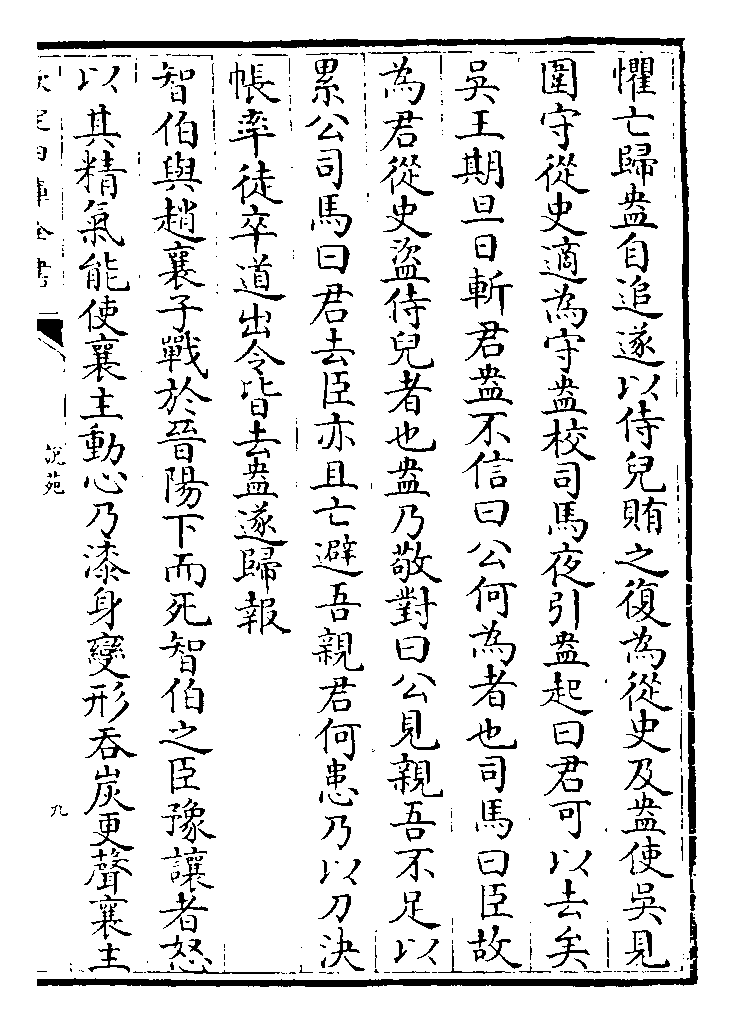 懼亡歸盎自追遂以侍兒賄之復為從史及盎使吳見
圍守從史適為守盎校司馬夜引盎起曰君可以去矣
吳王期旦日斬君盎不信曰公何為者也司馬曰臣故
為君從史盜侍兒者也盎乃敬對曰公見親吾不足以
累公司馬曰君去臣亦且亡避吾親君何患乃以刀決
帳率徒卒道出令皆去盎遂歸報
智伯與趙襄子戰於晉陽下而死智伯之臣豫讓者怒
以其精氣能使襄主動心乃漆身變形吞炭更聲襄主
欽定四庫全書
說苑
九